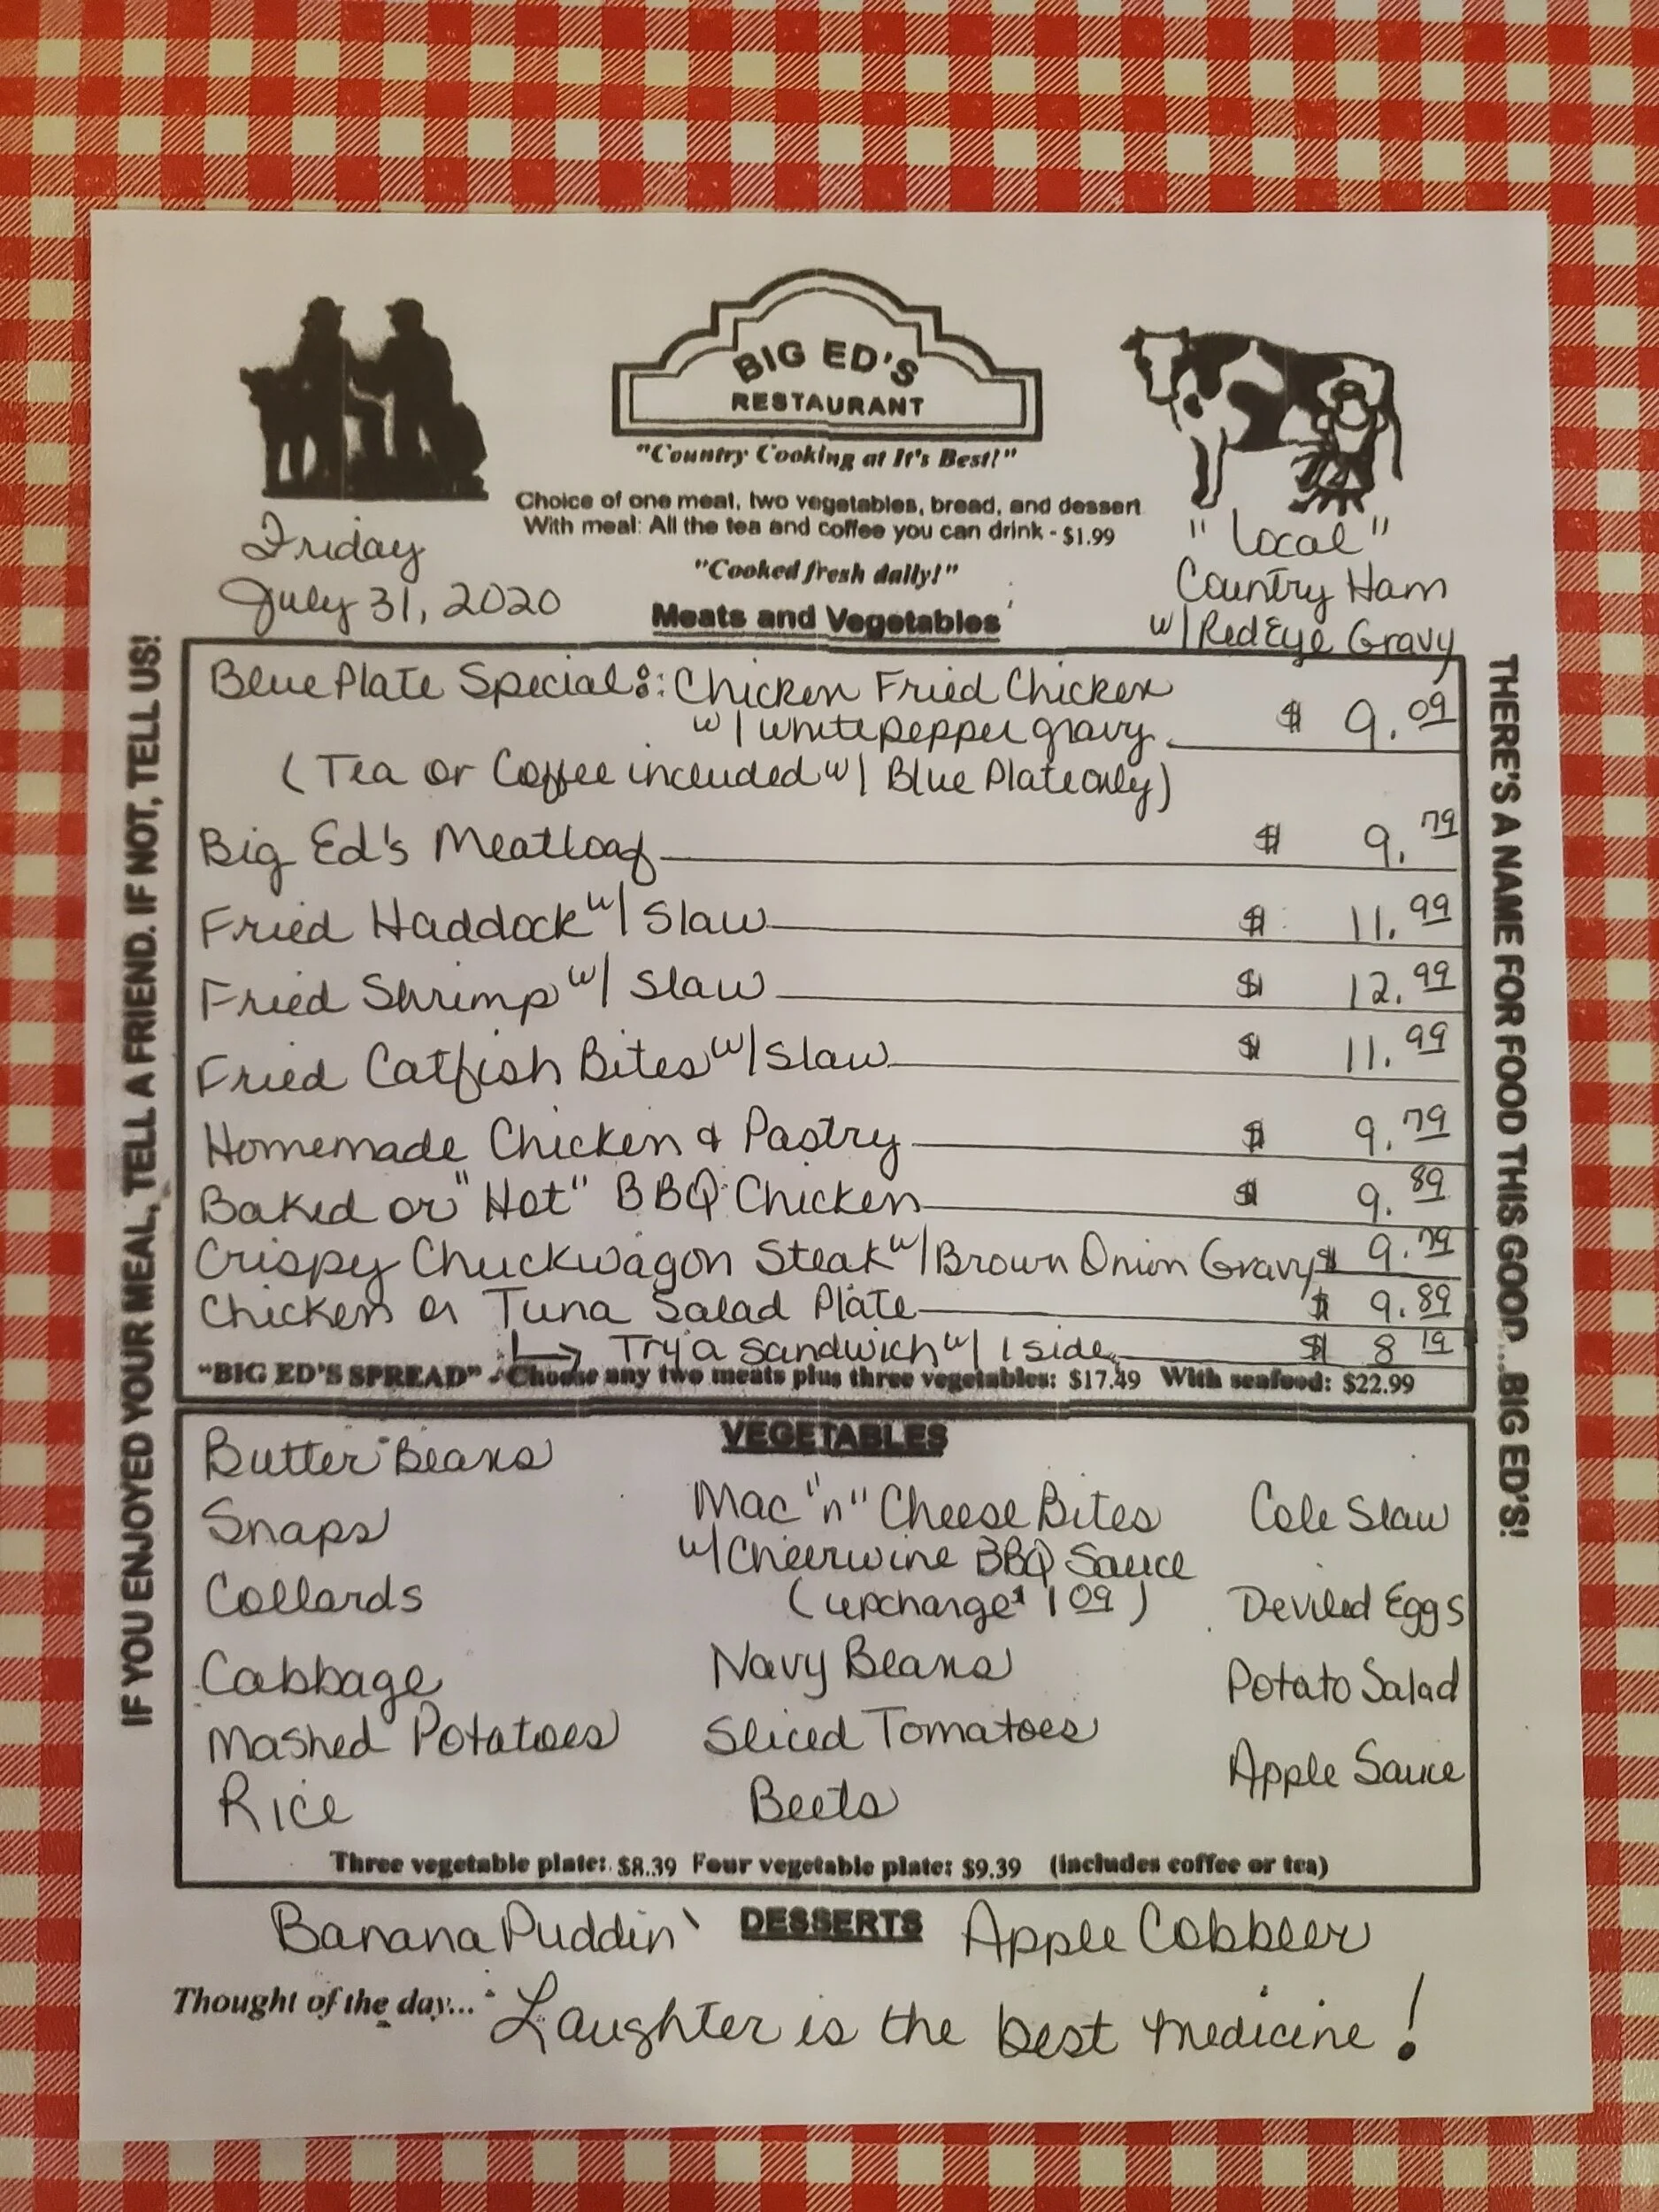 BIG ED'S
RESTAURANT
"Country Cooking at It's Best!"
Choice of one meat, two vegetables, bread, and dessert
With meal: All the tea and coffee you can drink - $1.99
"Cooked fresh daily!"
Friday
July 31, 2020
"Local"
Country Ham
w/ Red Eye Gravy
Meats and Vegetables
IF YOU ENJOYED YOUR MEAL, TELL A FRIEND. IF NOT, TELL US!
Blue Plate Special: Chicken Fried Chicken
w/ white pepper gravy $ 9.09
(Tea or Coffee included w/ Blue Plate only)
Big Ed's Meatloaf $ 9.79
Fried Haddock w/ Slaw $ 11.99
Fried Shrimp w/ Slaw $ 12.99
Fried Catfish Bites w/ Slaw $ 11.99
Homemade Chicken & Pastry $ 9.79
Baked or "Hot" BBQ Chicken $ 9.89
Crispy Chuckwagon Steak w/ Brown Onion Gravy $ 9.79
Chicken or Tuna Salad Plate $ 9.89
Try a Sandwich w/ 1 side $ 8 19
"BIG ED'S SPREAD" - Choose any two meats plus three vegetables: $17.49 With seafood: $22.99
THERE'S A NAME FOR FOOD THIS GOOD...BIG ED'S!
VEGETABLES
Butter Beans
Snaps
Collards
Cabbage
Mashed Potatoes
Rice
Mac "n" Cheese Bites
w/ Cheerwine BBQ Sauce
(upcharge $1 09)
Navy Beans
Sliced Tomatoes
Beets
Cole Slaw
Deviled Eggs
Potato Salad
Apple Sauce
Three vegetable plate: $8.39 Four vegetable plate: $9.39 (includes coffee or tea)
Banana Puddin' DESSERTS Apple Cobbler
Thought of the day... Laughter is the best medicine!